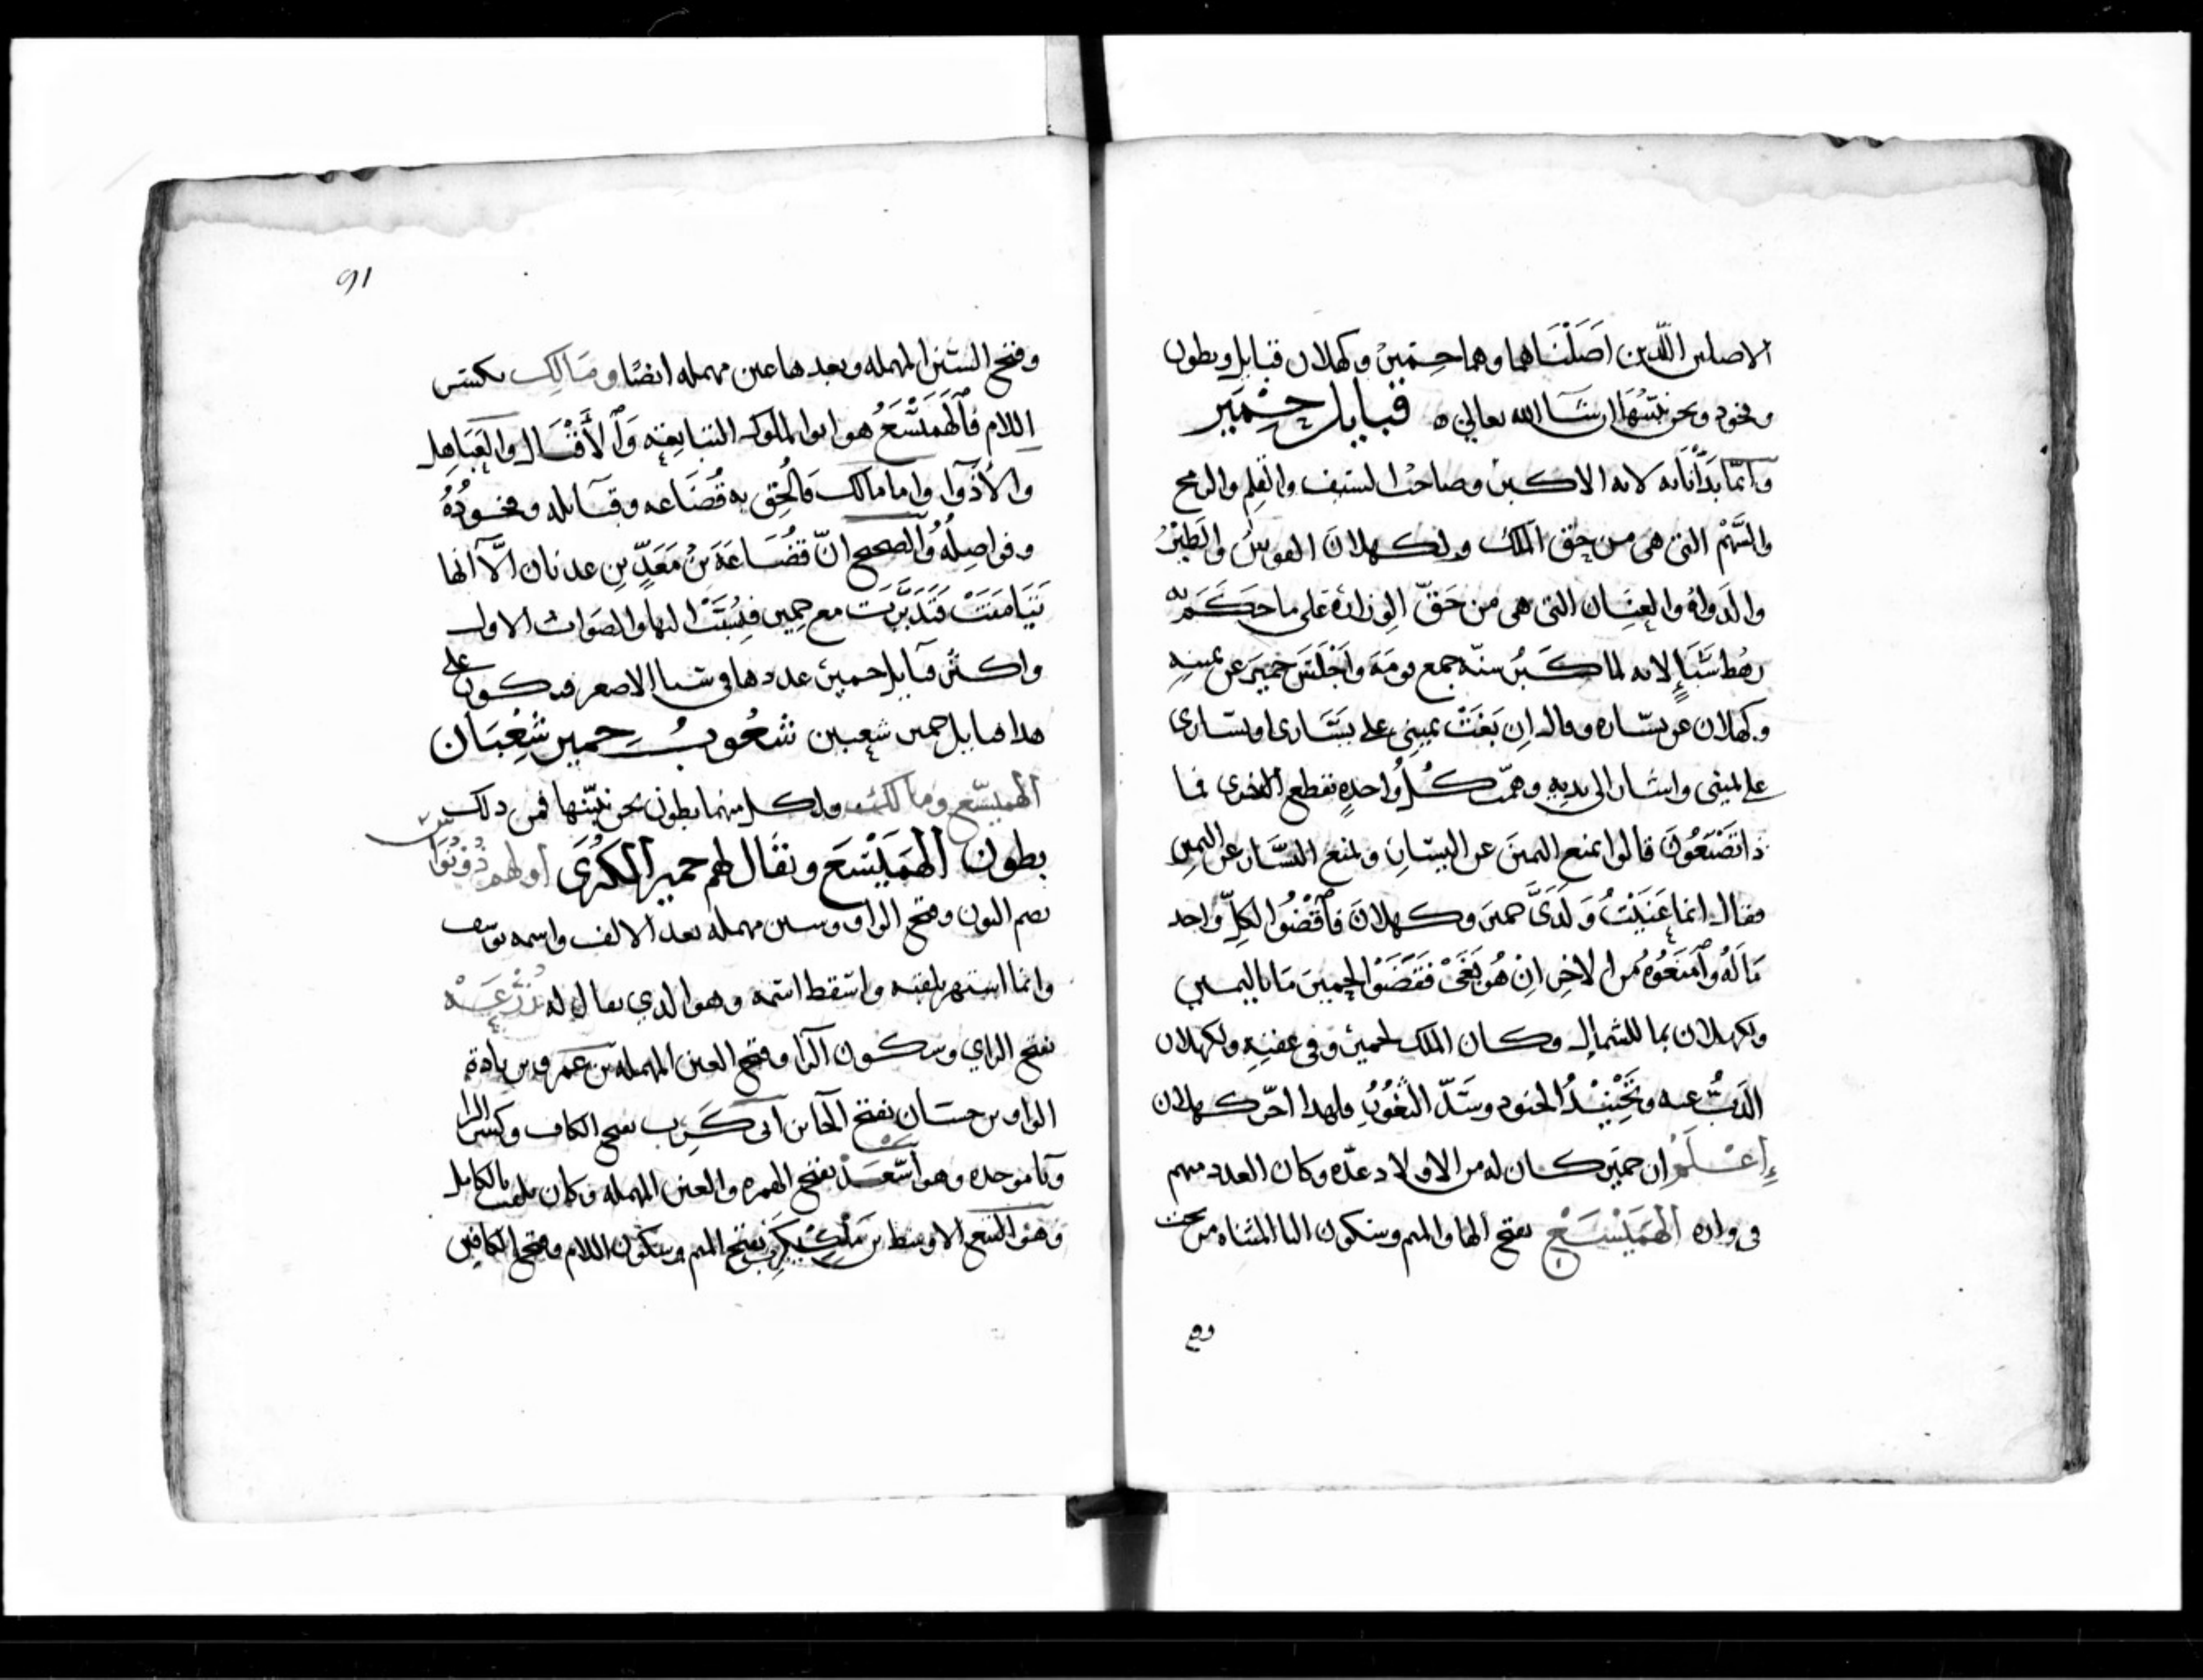 الاصلين اللذين اَصَّلْنَاهما وهما حمير وكهلان قبايل وبطون
وفخود ونحن نبيّنهَا ان شآ الله تعالى ه قبايل حِمْيَر
وانّما بَدَأْنَا به لانه الاكبر وصاحب السيف والقلم والرمح
والسَّهْم التى هى من حق الملك ولكهلان القوس والطير
والدواة والعِنَان التى هى من حَقّ الوِزارة على ما حَكَمَ به
رهْط سَبَإٍ لانه لما كَبُر سنّه جمع قومَهَ واَجْلَسَ حميَر عن يمينه
وكهلان عن يسَاره وقال اِن بَغَتْ يمينى على يسَارى او يسارى
على يمينى واشار الى يديهِ وهمّت كُلُّ واحدةٍ بقطع الاخرى فما
ذا تصْنَعُونَ قالوا نمنع اليمينَ عن اليسار ونمنع اليسَار عن اليمين
فقال انما عَنَيْتُ وَلَدَىَّ حمير وكهلانَ فآقْضُوا لكلّ واحد
مَا لَهُ وآمنَعُوهُ من الاخر اِنْ هُو بَغَىْ فَقَضَوْا لحمير مَا باليمين
ولكهلان بما للشمال وكان الملك لحمير وفى عقبِهِ ولكهلان
الذَبُّ عنه وتَجْنِيْدُ الجنود وسَدّ الثُغُورِ ولهذا اخّر كهلان
اِعْلَمْ ان حميَر كان له من الاولاد عدّه وكان العدد منهم
فى ولده الهَمَيْسَعْ بفتح الها والميم وسكون اليا المثناه من تحت
وفتح السّين المهمله وبعدها عين مهمله ايضًا ومَالِك بكسر
اللام فآلهَمَيْسَعُ هو ابو الملوك التبابعة وَآلأَقْيَال والعَبَاهِل
والأذْوآ واما مالك فاُلحِق به قُضَاعه وقبآيله وفخودُهُ
وفواصِلُهُ والصحيح انّ قضُاعَةَ بنُ مَعَدِّ بنِ عدنان اِلَّا آنها
تَيَامَنَتْ فَتَدَبَّرَت مع حمير فنُسِبَتْ اليها والصَوابُ الاول
واكثر قبآيل حمير عددها فى سبا الاصغر فيكون على
هذا قبايل حمير شعبين شُعُوبُ حمير شَعْبَان
الهميسّع ومالك ولكل منهما بطون نحن نبيّنها فمن ذلك
بطون الهَمَيْسَع ويقال لهم حمير الكُبْرَى اولهم ذُو نُوَاس
بضم النون وفتح الواو وسين مهمله بعد الالف واسمه يوسف
وانما اشتهر بلقبه واسقط اسمه وهو الذي يقال له زُرْعَهْ
بفتح الزاي وسكون الرا وفتح العين المهمله بن عَمرو بن يادة
الواو بن حسَان بفتح الحا بن ابى كَرِب بفتح الكاف وكسر الرا
وبا موحده وهو أسْعَدْ بفتح الهمزه والعين المهمله وكان يلقب بالكامل
وهو التبع الاوسط بن مَلْكِيْكَرِب بفتح الميم وسكون اللام وفتح الكافين